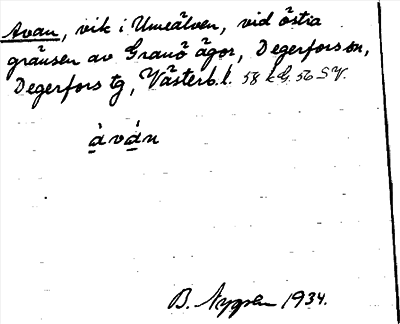 Avan, vik i Umeälven, vid östra
gränsen av Granö ägor, Degerfors sn,
Degerfors tg, Västerb. l. 58 k G. 56 SV.
àván
B. Nygren 1934.